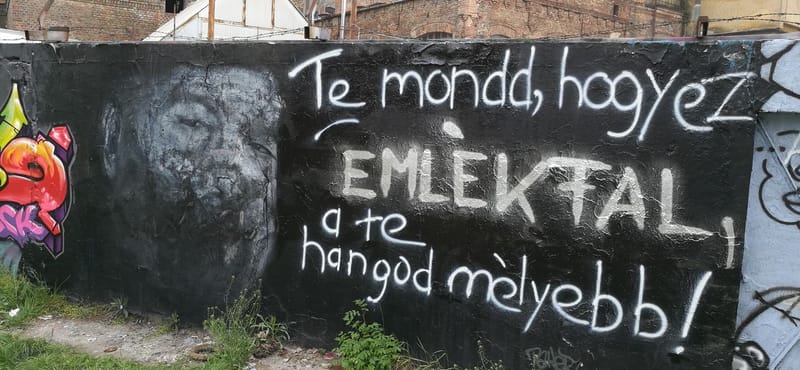 Te mondd, hogy ez
EMLÈKFAL,
a te
hangod mèlyebb!